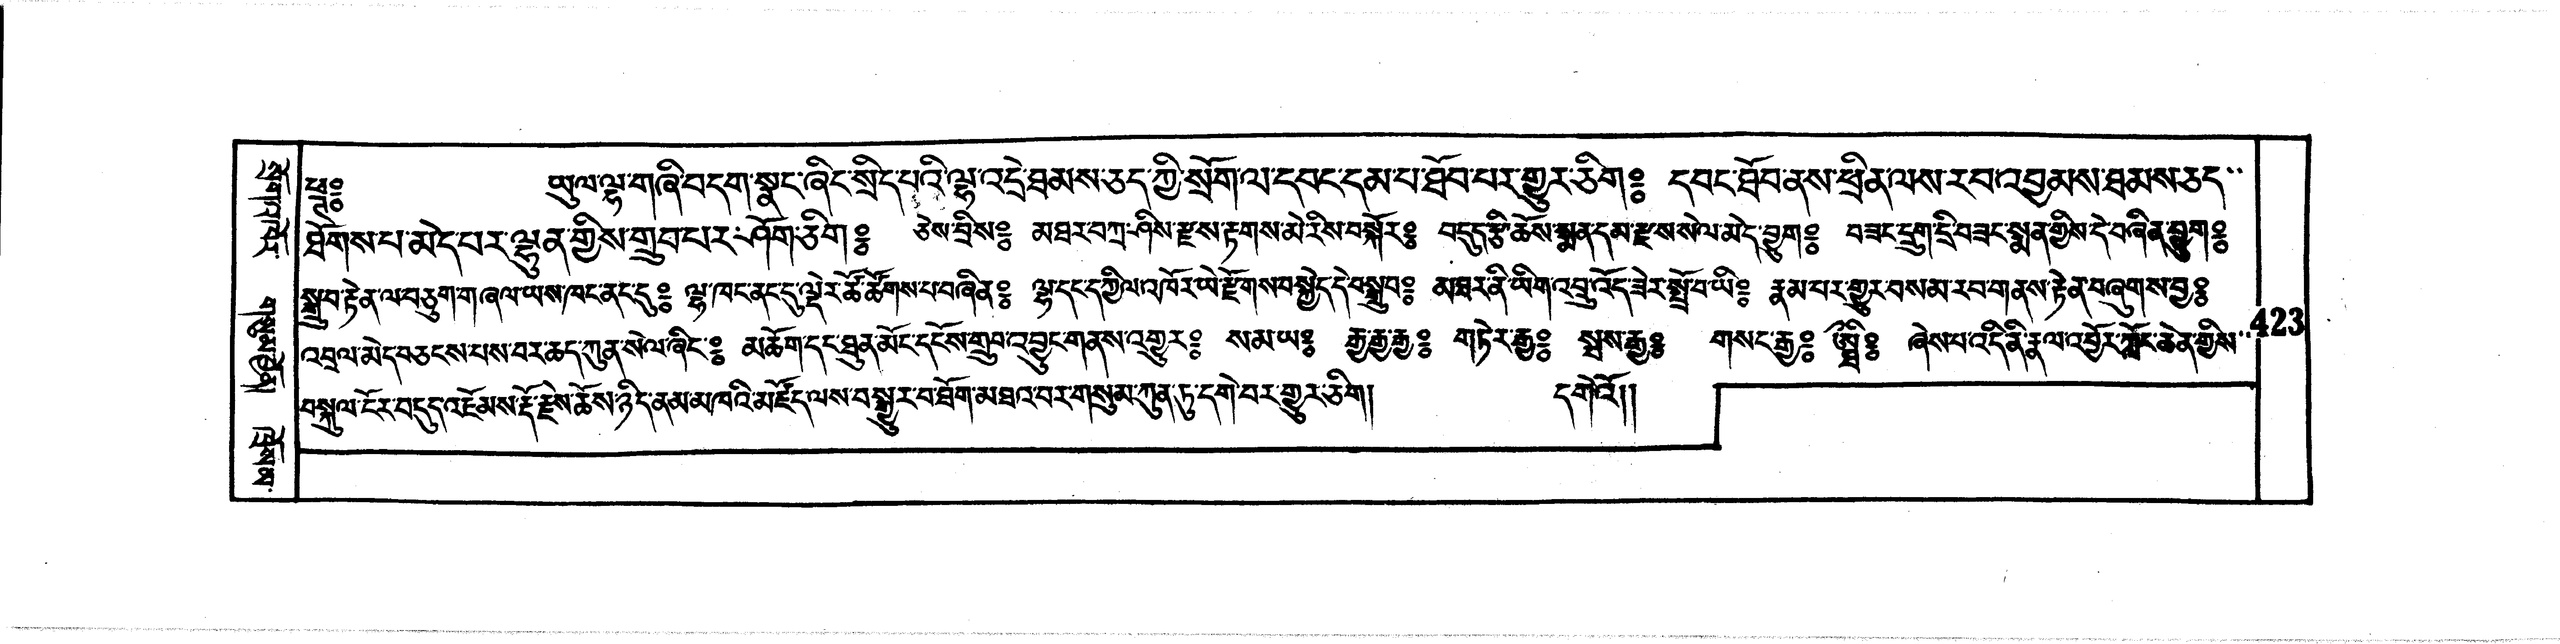 ཕཊ༔ ཨུལ་ལྷ་གཞི་བདག་སྣང་ཞིང་སྲིད་པའི་ལྷ་འདྲེ་ཐམས་ཅད་ཀྱི་སྲོག་ལ་དབང་དམ་པ་ཐོབ་པར་གྱུར་ཅིག༔ དབང་ཐོབ་ནས་ཕྲིན་ལས་རབ་འབྱམས་ཐམས་ཅད་
ཐོགས་པ་མེད་པར་ལྷུན་གྱིས་གྲུབ་པར་ཤོག་ཅིག༔ ཅེས་བྲིས༔ མཐར་བཀྲ་ཤིས་རྫས་རྟགས་མེ་རིས་བསྐོར༔ བདུད་རྩི་ཆོས་སྨན་དམ་རྫས་སེལ་མེད་བྱུག༔ བཟང་དྲུག་དྲི་བཟང་སྨན་གྱིས་དེ་བཞིན་བྱུག༔
སྒྲུབ་རྟེན་ལ་བཅུག་གཞལ་ཡས་ཁང་ནང་དུ༔ ལྷ་ཁང་ནང་དུ་ལྡེར་ཚོ་ཚོགས་པ་བཞིན༔ ལྷ་དང་དཀྱིལ་འཁོར་ཡེ་རྫོགས་བསྐྱེད་དེ་བསྒྲུབ༔ མཐར་ནི་ཡིག་འབྲུ་འོད་ཟེར་སྤྲོ་བ་ཡི༔ རྣམ་པར་གྱུར་བསམ་རབ་གནས་རྟེན་བཞུགས་བྱ༔
འབྲལ་མེད་བཅངས་པས་བར་ཆད་ཀུན་སེལ་ཞིང་༔ མཆོག་དང་ཐུན་མོང་དངོས་གྲུབ་འབྱུང་གནས་འགྱུར༔ ས་མ་ཡ༔ རྒྱ་རྒྱ་རྒྱ༔ གཏེར་རྒྱ༔ སྦས་རྒྱ༔ གསང་རྒྱ༔ ཨི་ཐི༔ ཞེས་པ་འདི་ནི་རྣལ་འབྱོར་ཀློང་ཆེན་གྱིས་
བསྐུལ་ངོར་བདུད་འཇོམས་རྡོ་རྗེས་ཆོས་ཉིད་ནམ་མཁའི་མཛོད་ལས་བསྒྱུར་བ་ཐོག་མཐའ་བར་གསུམ་ཀུན་ཏུ་དགེ་བར་གྱུར་ཅིག། དགེའོ།།
423